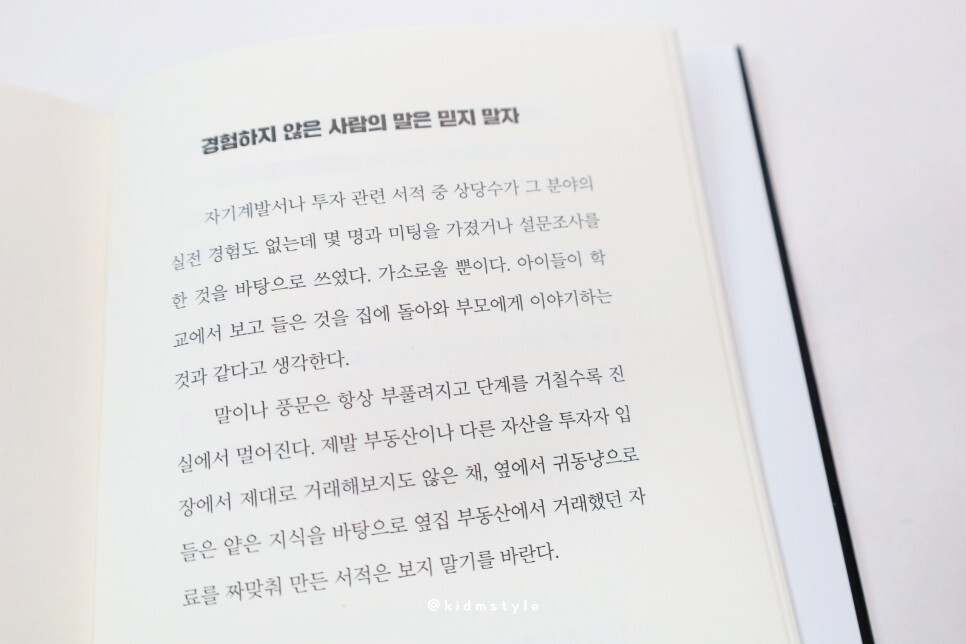 경험하지 않은 사람의 말은 믿지 말자
자기계발서나 투자 관련 서적 중 상당수가 그 분야의
실전 경험도 없는데 몇 명과 미팅을 가졌거나 설문조사를
한 것을 바탕으로 쓰였다. 가소로울 뿐이다. 아이들이 학
교에서 보고 들은 것을 집에 돌아와 부모에게 이야기하는
것과 같다고 생각한다.
말이나 풍문은 항상 부풀려지고 단계를 거칠수록 진
실에서 멀어진다. 제발 부동산이나 다른 자산을 투자자 입
장에서 제대로 거래해보지도 않은 채, 옆에서 귀동냥으로
들은 얕은 지식을 바탕으로 옆집 부동산에서 거래했던 자
료를 짜맞춰 만든 서적은 보지 말기를 바란다.
@kidmstyle